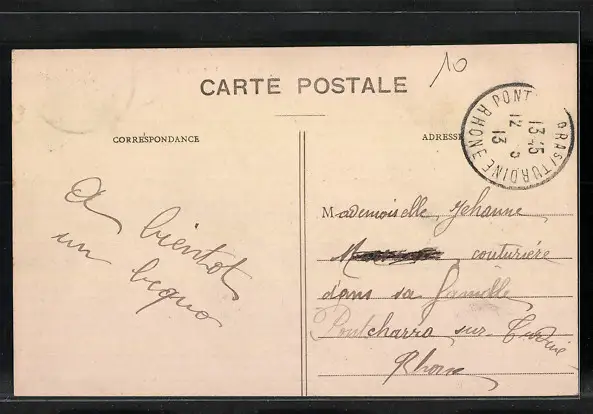 CARTE POSTALE
10
CORRESPONDANCE
ADRESSE
PONT RHONE
13-15
12
13
A bientot
un
Mademoiselle Jehanne
couturière
dans sa famille
Pontcharra sur-Turdine
Rhone